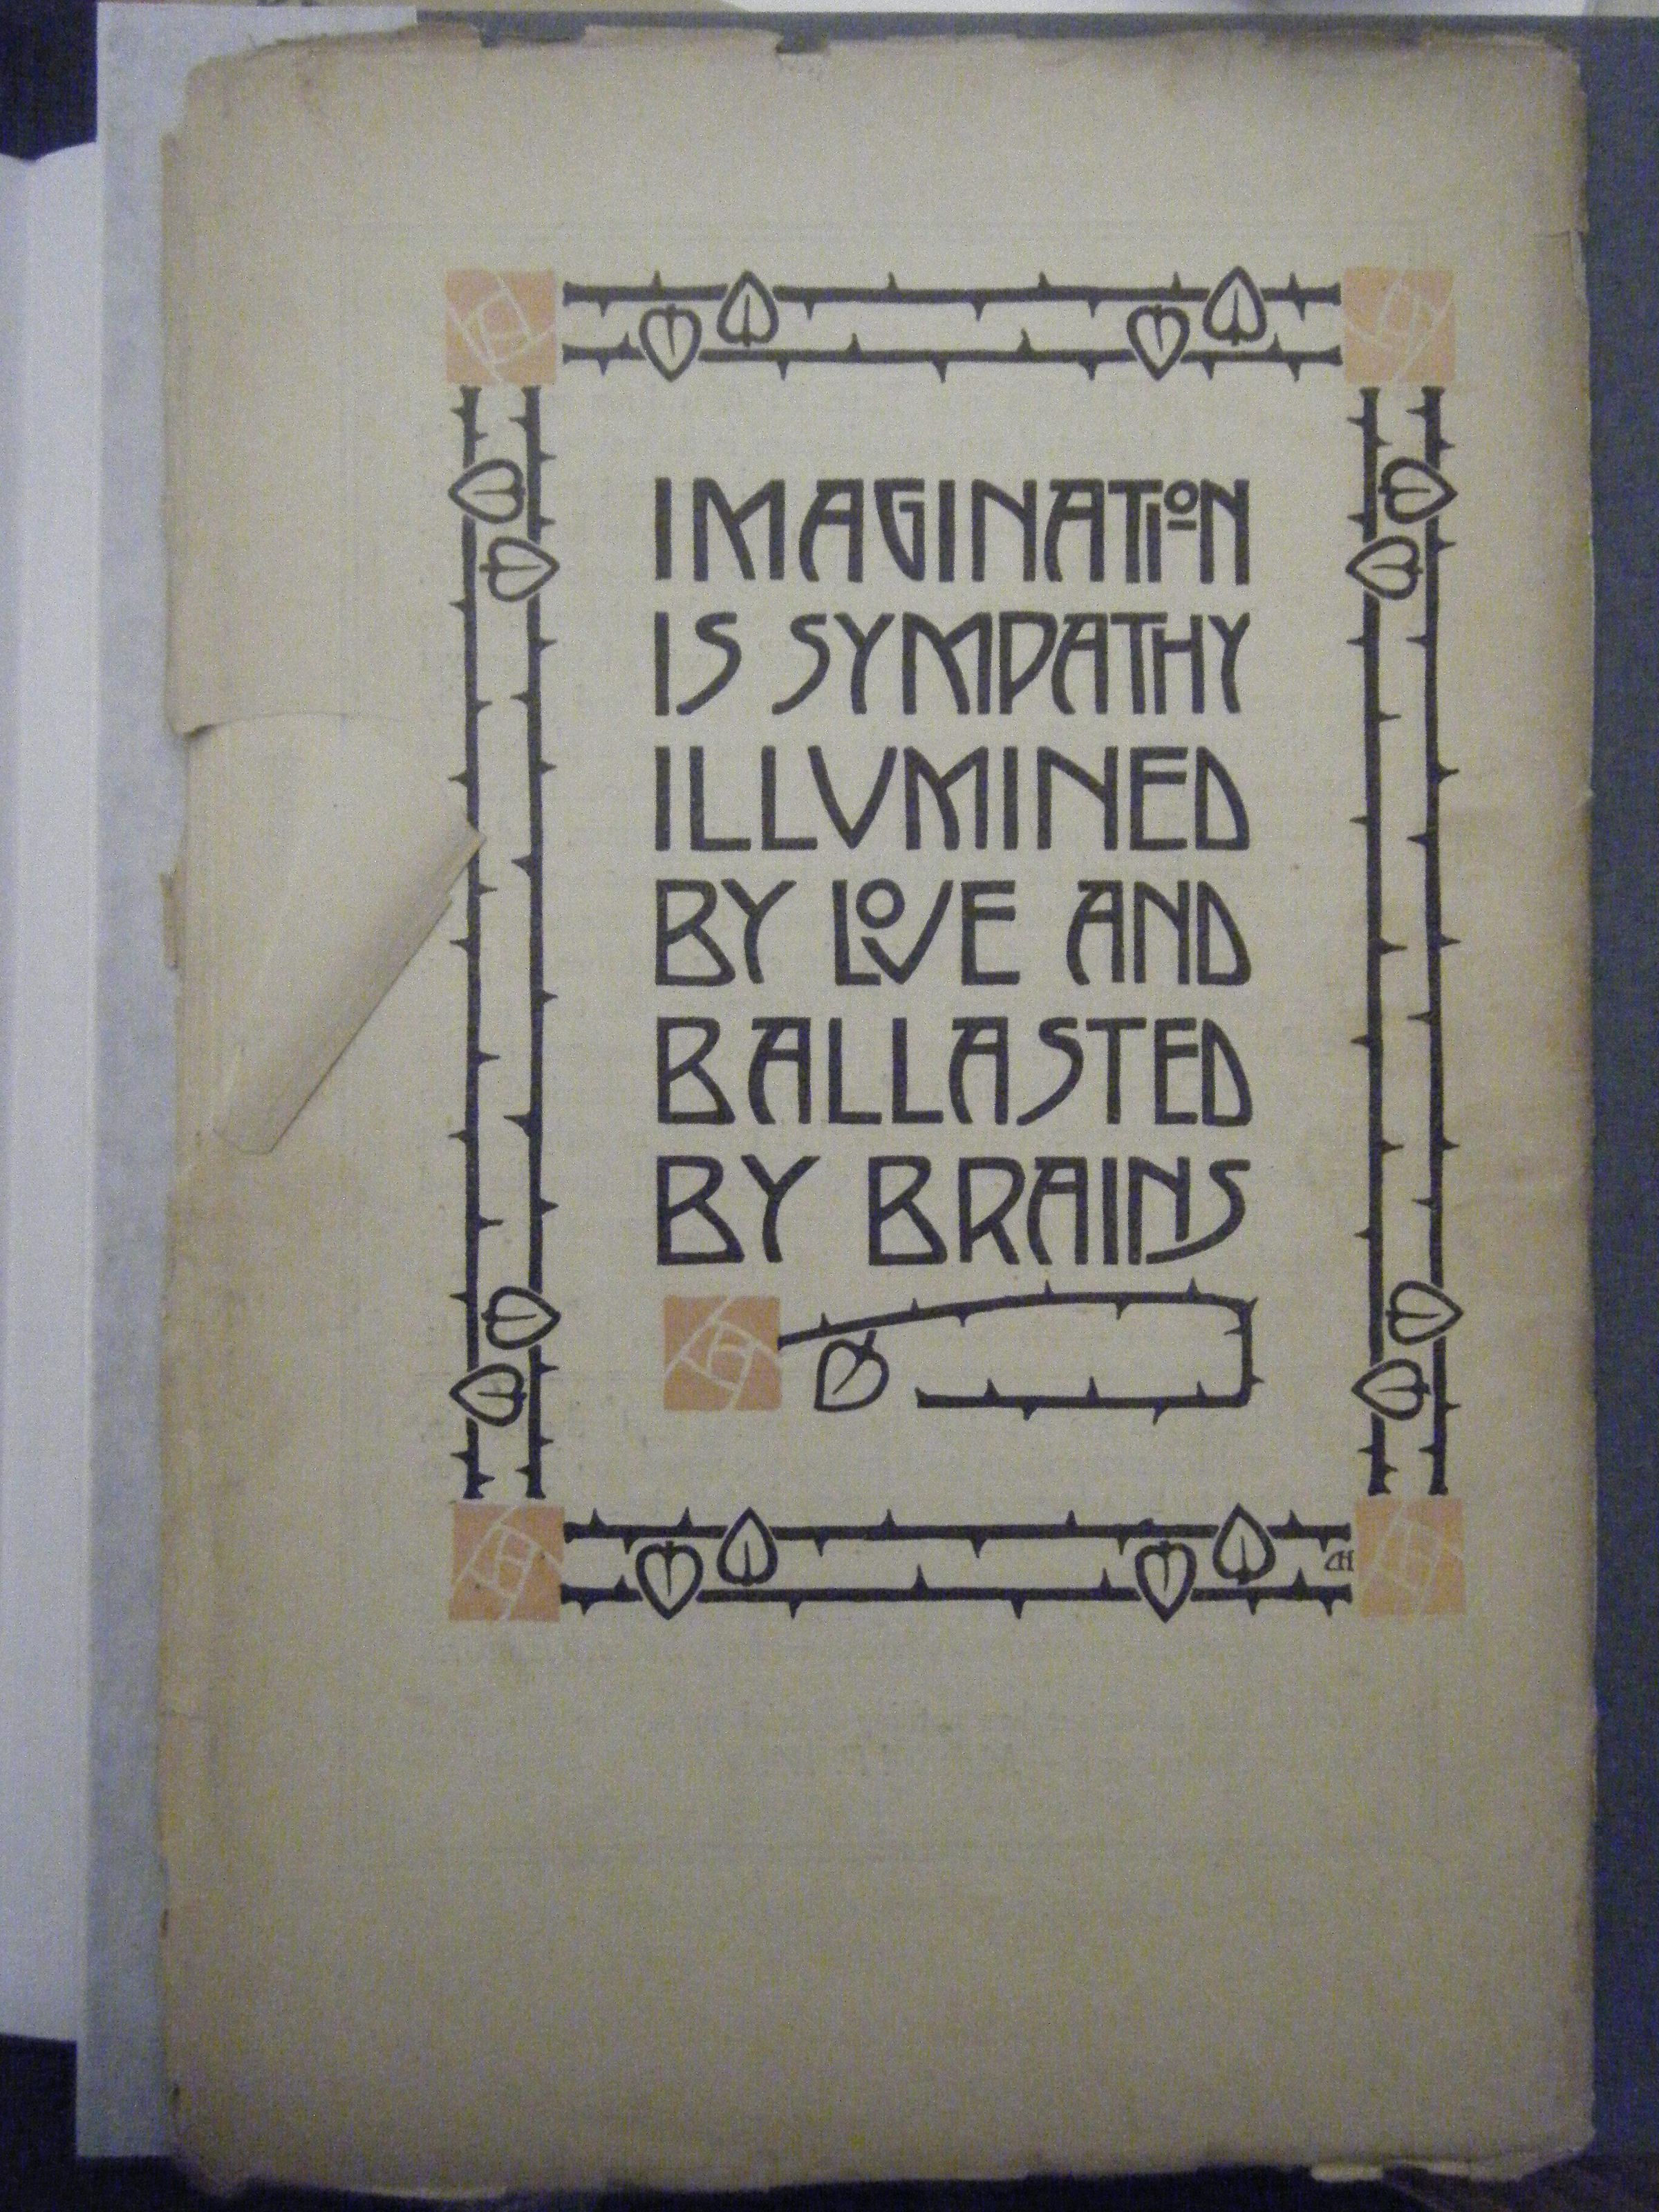 IMAGINATION
IS SYMPATHY
ILLVMINED
BY LOVE AND
BALLASTED
BY BRAINS
DH